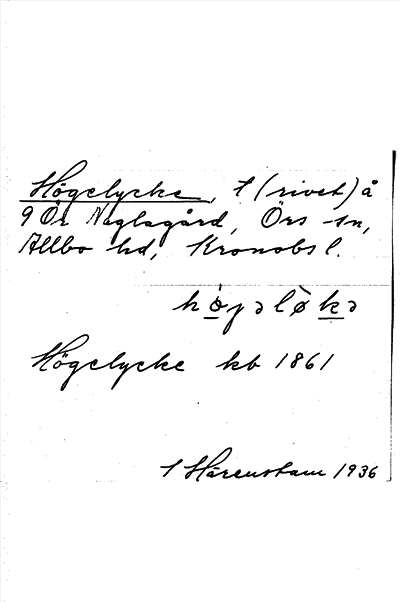 Högelycke, t (rivet) å
9 Ör Naglagård, Örs sn,
Allbo hd, Kronobs l.
hø̀ɟəlø̀kə
Högelycke kb 1861
I Hårenstam 1936